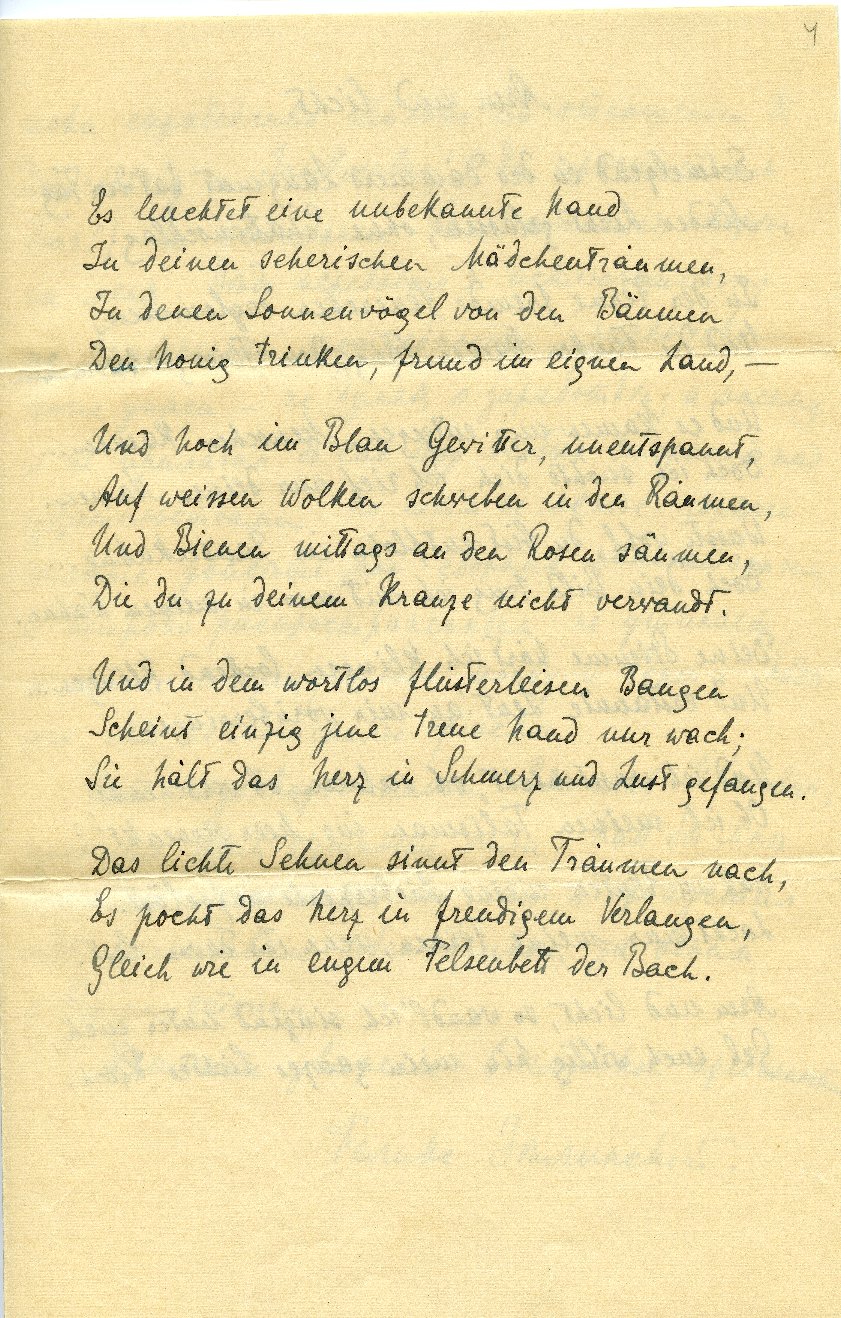 4
Es leuchtet eine unbekannte Hand
In deinen seherischen Mädchenträumen,
In denen Sonnenvögel von den Bäumen
Den Honig trinken, fremd im eignen Land, —
Und hoch im Blau Gewitter, unentspannt,
Auf weissen Wolken schweben in den Räumen,
Und Bienen mittags an den Rosen säumen,
Die du zu deinem Kranze nicht verwandt.
Und in dem wortlos flüsterleisen Bangen
Scheint einzig jene treue Hand nur wach;
Sie hält das Herz in Schmerz und Lust gefangen.
Das lichte Sehnen sinnt den Träumen nach,
Es pocht das Herz in freudigem Verlangen,
Gleich wie in engem Felsenbett der Bach.